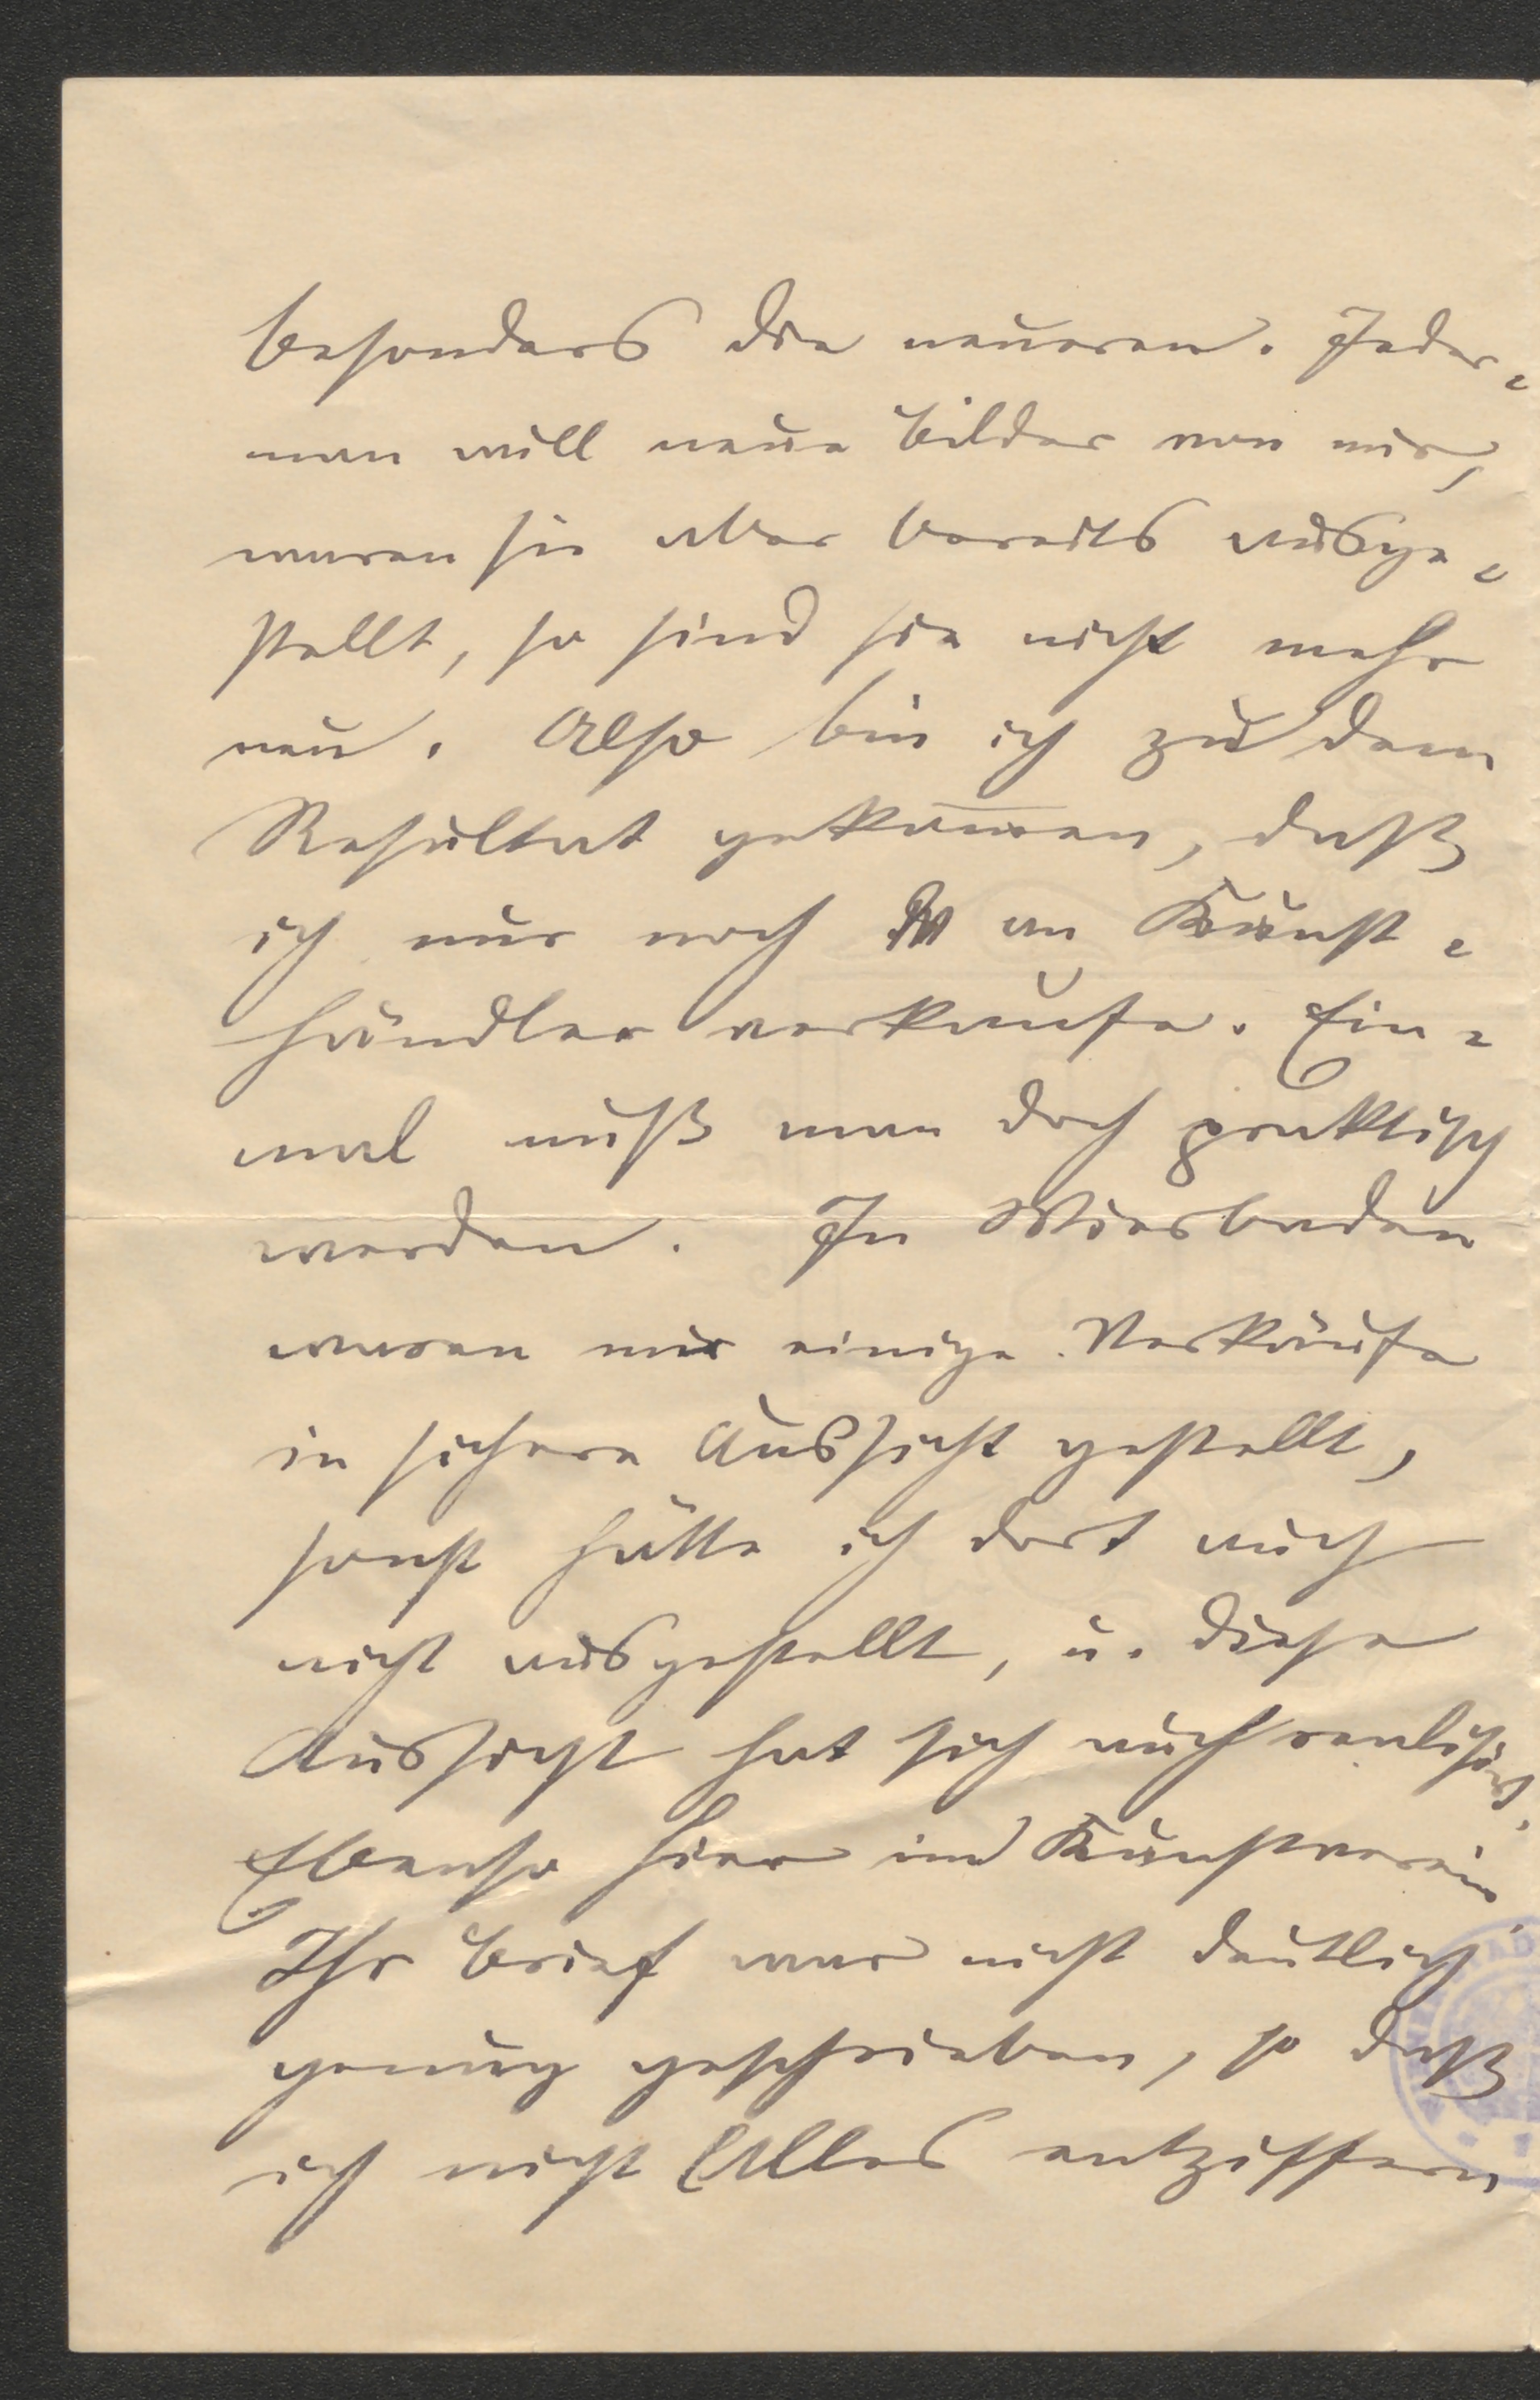 besonders die neueren. Jeder-
man will neue Bilder von mir,
waren sie aber bereits ausge-
stellt, so sind sie nicht mehr
neu. Also bin ich zu dem
Resultat gekom̅en, daß
ich nur noch an Kunst-
händler verkaufe. Ein-
mal muß man doch praktisch
werden. In Wiesbaden
waren mir einige Verkäufe
in sichere Aussicht gestellt,
sonst hätte ich dort auch
nicht ausgestellt, u. diese
Aussicht hat sich auch realisirt.
Ebenso hier im Kunstverein.
Ihr Brief war nicht deutlich
genug geschrieben, so daß
ich nicht Alles entziffern